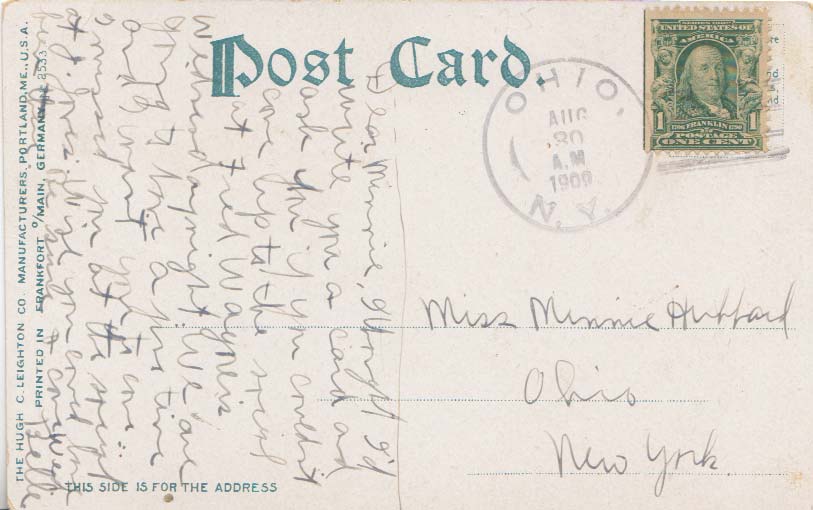 Post Card.
OHIO,
AUG
30
A.M
1909
N.Y.
SERIES 1902
UNITED STATES OF
AMERICA
1 1
1706 FRANKLIN 1790
POSTAGE
ONE CENT
Dear Minnie, Thought I'd
write you a card and
ask you if you couldn't
come up to the social
at Fred Wagners
Wednesday night. We are
going to have a fine time
and want you to come
missed you at the social
at J. wish you could have
Belle
Miss Minnie Hubbard
Ohio
New York.
THIS SIDE IS FOR THE ADDRESS
THE HUGH C. LEIGHTON CO. MANUFACTURERS, PORTLAND, ME., U.S.A.
PRINTED IN FRANKFORT o/MAIN, GERMANY. 2533